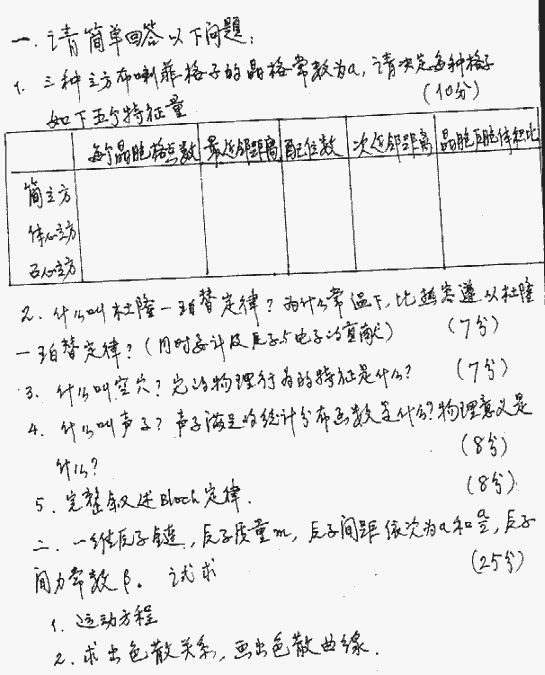 一. 请简单回答以下问题:
1. 三种立方布喇菲格子的晶格常数为a, 请决定每种格子
如下五个特征量 (10分)
每个晶胞格点数 最近邻距离 配位数 次近邻距离 晶胞原胞体积比
简立方
体心立方
面心立方
2. 什么叫杜隆—珀替定律? 为什么常温下, 比热容遵从杜隆
一珀替定律? (同时要计及原子与电子的贡献) (7分)
3. 什么叫空穴? 它的物理行为的特征是什么? (7分)
4. 什么叫声子? 声子满足的统计分布函数是什么? 物理意义是
什么? (8分)
5. 完整叙述Bloch定律. (8分)
二. 一维原子链, 原子质量m, 原子间距依次为a和a/2, 原子
间力常数β。 试求 (25分)
1. 运动方程
2. 求出色散关系, 画出色散曲线.